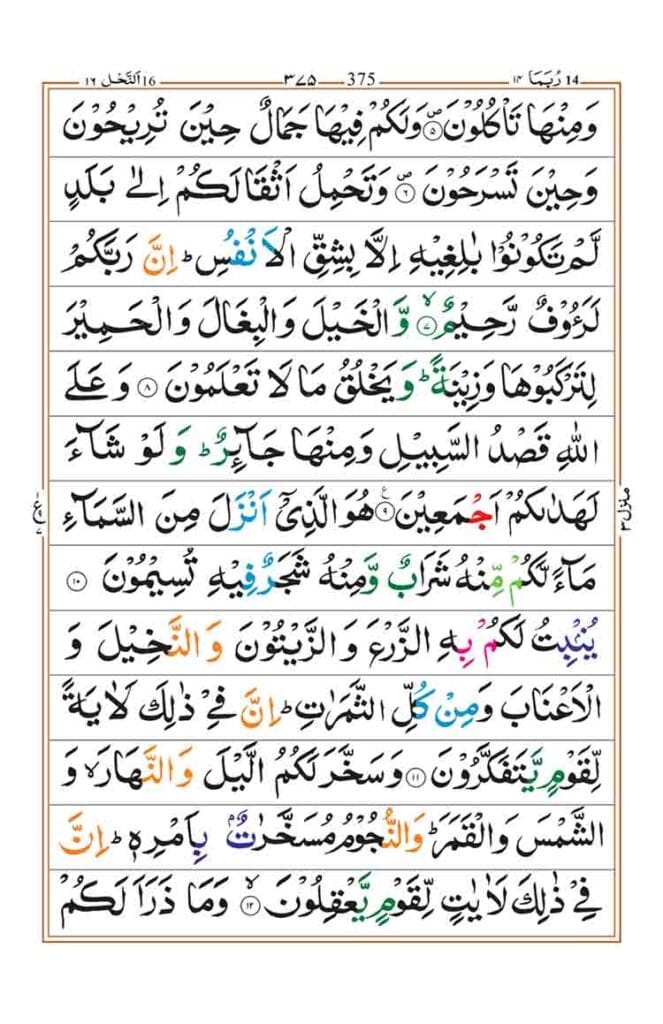 14 رُبَمَا ١٤ 375 ٣٧٥ 16 اَلنَّحْل ١٦
وَمِنْهَا تَاْكُلُوْنَ ۪۝۵ وَلَكُمْ فِيْهَا جَمَالٌ حِيْنَ تُرِيْحُوْنَ
وَحِيْنَ تَسْرَحُوْنَ ۝۶ وَتَحْمِلُ اَثْقَالَكُمْ اِلٰى بَلَدٍ
لَّمْ تَكُوْنُوْا بٰلِغِيْهِ اِلَّا بِشِقِّ الْاَنْفُسِ ؕ اِنَّ رَبَّكُمْ
لَرَءُوْفٌ رَّحِيْمٌ ۙ۝۷ وَّالْخَيْلَ وَالْبِغَالَ وَالْحَمِيْرَ
لِتَرْكَبُوْهَا وَزِيْنَةً ؕ وَيَخْلُقُ مَا لَا تَعْلَمُوْنَ ۝۸ وَعَلَى
اللّٰهِ قَصْدُ السَّبِيْلِ وَمِنْهَا جَآئِرٌ ؕ وَلَوْ شَآءَ
لَهَدٰىكُمْ اَجْمَعِيْنَ ۝۹ ع هُوَ الَّذِيْۤ اَنْزَلَ مِنَ السَّمَآءِ
مَآءً لَّكُمْ مِّنْهُ شَرَابٌ وَّمِنْهُ شَجَرٌ فِيْهِ تُسِيْمُوْنَ ۝۱۰
يُنْۢبِتُ لَكُمْ بِهِ الزَّرْعَ وَالزَّيْتُوْنَ وَالنَّخِيْلَ وَ
الْاَعْنَابَ وَمِنْ كُلِّ الثَّمَرٰتِ ؕ اِنَّ فِيْ ذٰلِكَ لَاٰيَةً
لِّقَوْمٍ يَّتَفَكَّرُوْنَ ۝۱۱ وَسَخَّرَ لَكُمُ الَّيْلَ وَالنَّهَارَ ۙ وَ
الشَّمْسَ وَالْقَمَرَ ؕ وَالنُّجُوْمُ مُسَخَّرٰتٌۢ بِاَمْرِهٖ ؕ اِنَّ
فِيْ ذٰلِكَ لَاٰيٰتٍ لِّقَوْمٍ يَّعْقِلُوْنَ ۝۱۲ وَمَا ذَرَاَ لَكُمْ
منزل ٣